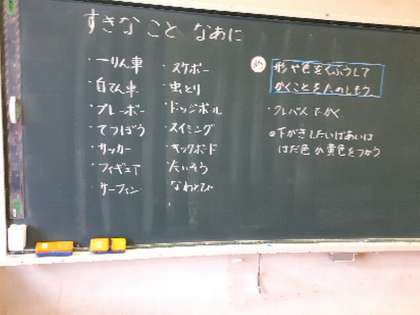 すきなこと なあに
・一りん車
・自てん車
・ブレーボー
・てつぼう
・サッカー
・フィギュア
・サーフィン
・スケボー
・虫とり
・ドッジボール
・スイミング
・キックボード
・たいそう
・なわとび
め
形や色をくふうして
かくことをたのしもう。
・クレパスでかく
◎下がきしたいばあいは
はだ色か黄色をつかう